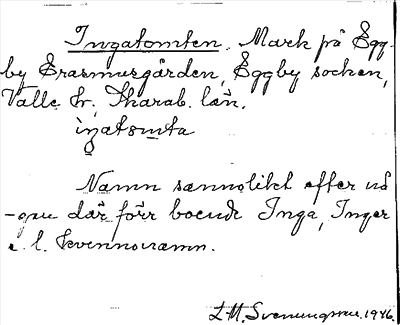 Ingatomten. Mark på Egg-
by Erasmusgården, Eggby socken,
Valle hr, Skarab. län.
iŋatomta
Namn sannolikt efter nå-
-gon där förr boende Inga, Inger
e. l. kvinnonamn.
S.M. Svenungsson. 1946.